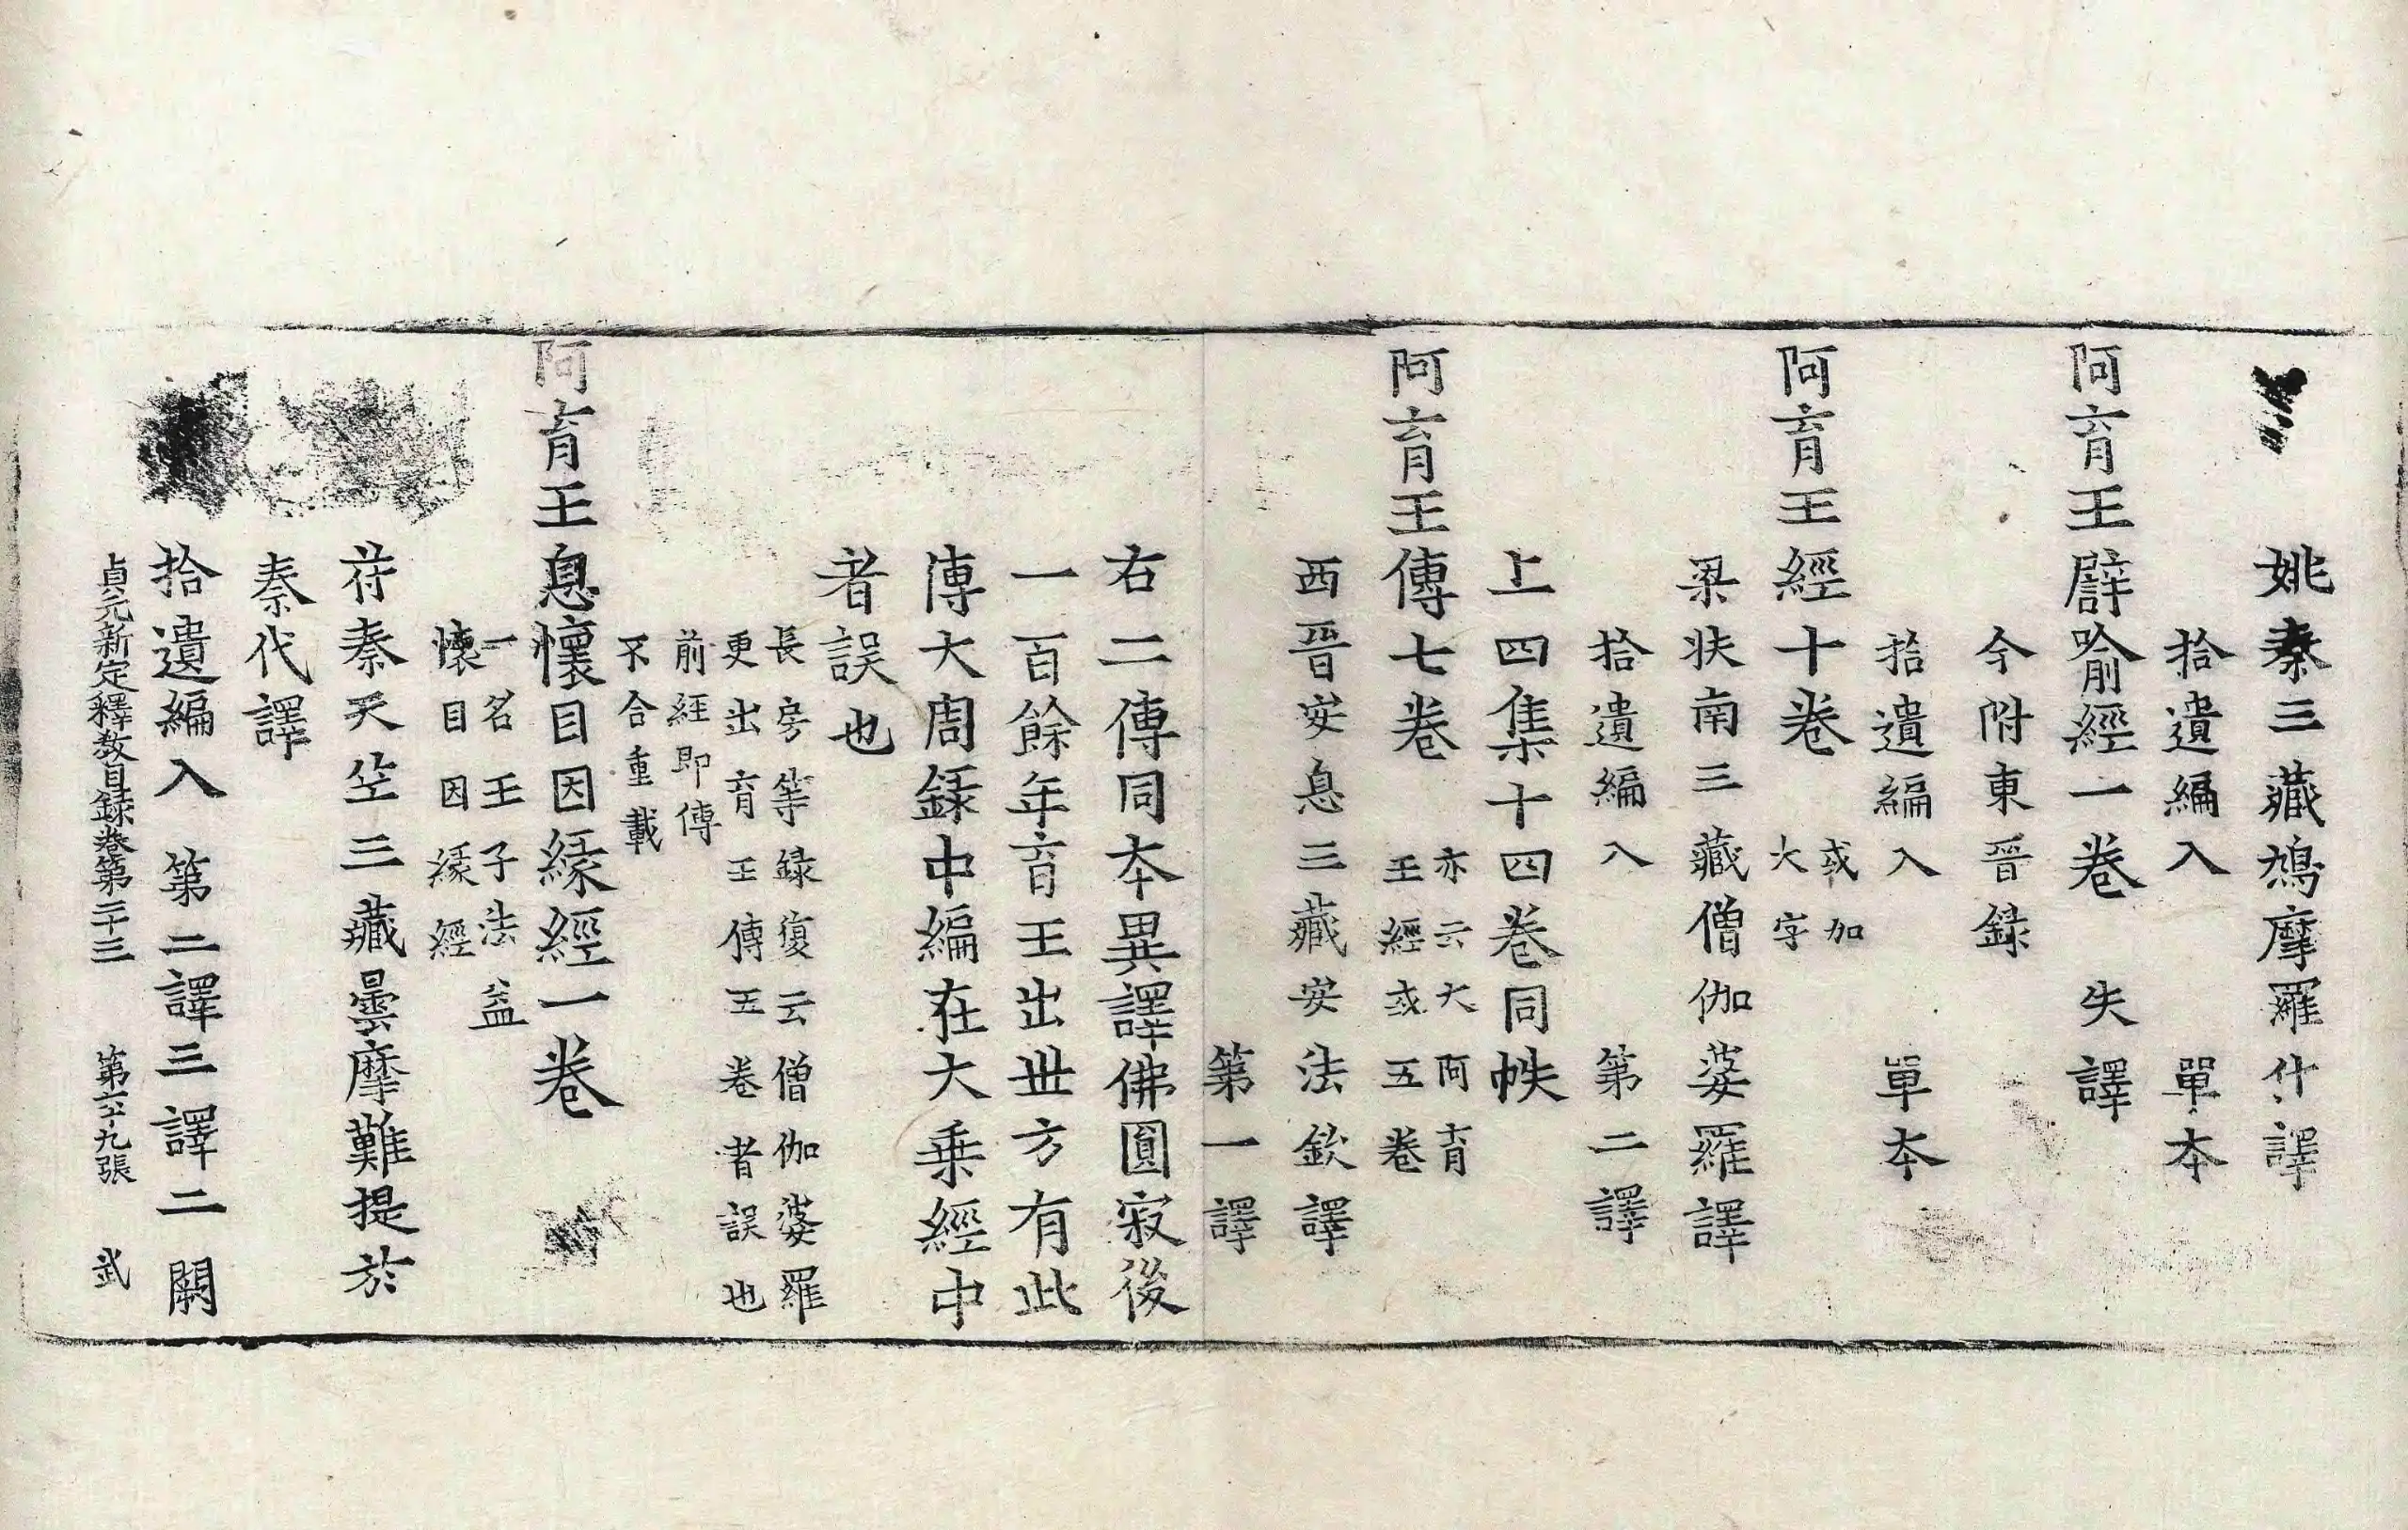 姚秦三藏鳩摩羅什譯
拾遺編入　單本
阿育王譬喻經一卷　失譯
今附東晉錄
拾遺編入　單本
阿育王經十卷　或加
大字
梁扶南三藏僧伽婆羅譯
拾遺編入　第二譯
上四集十四卷同帙
阿育王傳七卷　亦云大阿育
王經或五卷
西晉安息三藏安法欽譯
第一譯
右二傳同本異譯佛圓寂後
一百餘年育王出世方有此
傳大周錄中編在大乗經中
者誤也
長房等錄復云僧伽婆羅
更出育王傳五卷者誤也
前經即傳
不合重載
阿育王息懷目因緣經一卷
一名王子法益
懷目因緣經
苻秦天竺三藏曇摩難提於
秦代譯
拾遺編入　第二譯三譯二闕
貞元新定釋教目録卷第二十三　第六九張　武